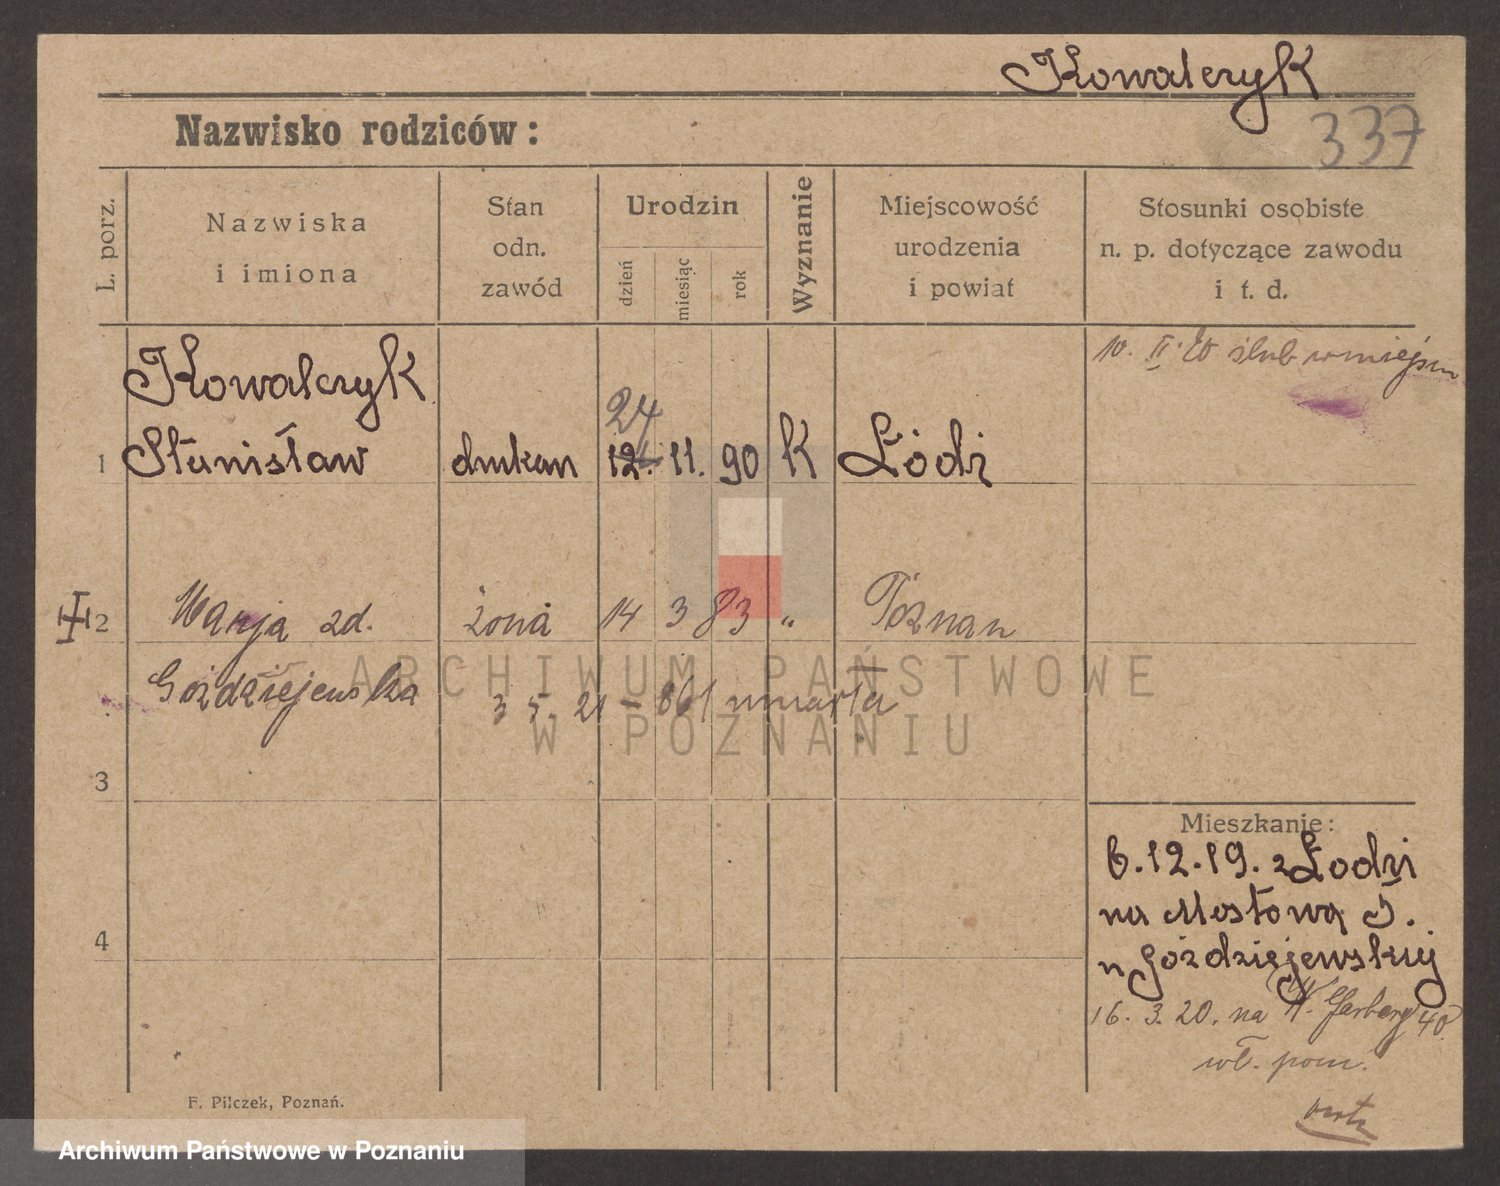 Kowalczyk
337
Nazwisko rodziców:
L. porz.
Nazwiska
i imiona
Stan
odn.
zawód
Urodzin
dzień
miesiąc
rok
Wyznanie
Miejscowość
urodzenia
i powiat
Stosunki osobiste
n. p. dotyczące zawodu
i t. d.
10. II. 20 ślub w miejscu
Kowalczyk
24
1 Stanisław drukarz 12. 11. 90 K Łódź
2 Marja zd. żona 14 3 83 " Poznan
Goździejewska
3 5. 21 - 861 umarła
ARCHIWUM PAŃSTWOWE
W POZNANIU
3
Mieszkanie:
6.12.19. z Łodzi
na Mostową 5.
u Goździejewskiej
4
16. 3. 20. na W. Garbary 40
wł. pom.
F. Pilczek, Poznań.
Archiwum Państwowe w Poznaniu